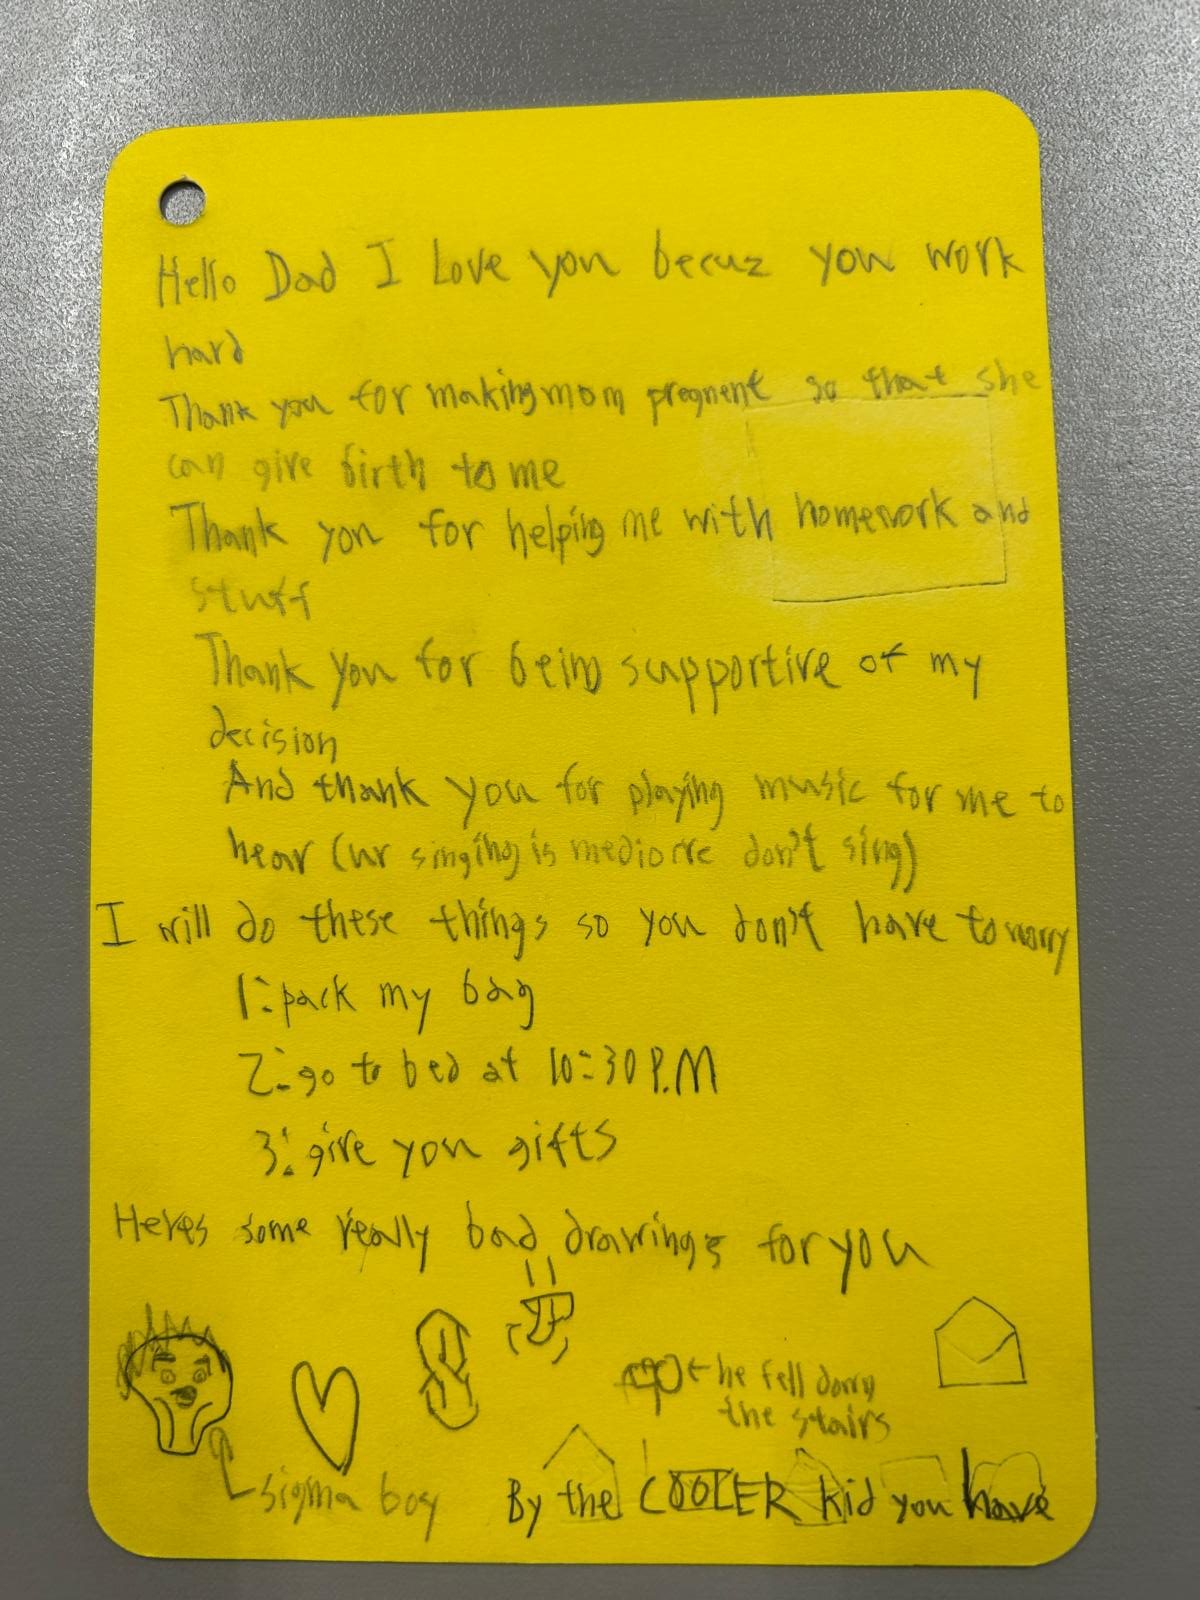 Hello Dad I Love you becuz you work
hard
Thank you for making mom pregnent so that she
can give birth to me
Thank you for helping me with homework and
stuff
Thank you for being supportive of my
decision
And thank you for playing music for me to
hear (ur singing is mediocre don't sing)
I will do these things so you don't have to worry
1: pack my bag
2: go to bed at 10:30 P.M
3: give you gifts
Heres some really bad drawings for you
he fell down
the stairs
sigma boy
By the COOLER kid you have